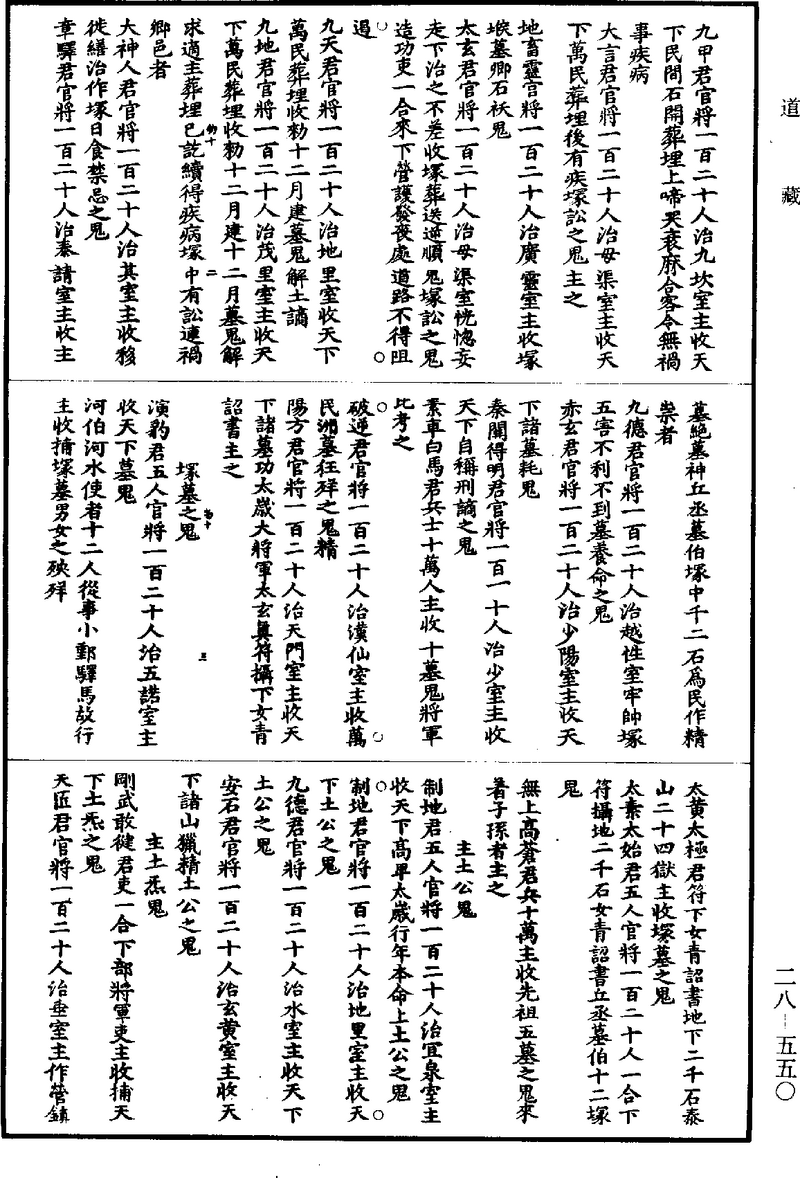 道藏
九甲君官將一百二十人治九坎室主收天
下民間石開葬埋上啼哭衰麻合客令無禍
事疾病
大言君官將一百二十人治母渠室主收天
下萬民葬埋後有疾塚訟之鬼主之
地畜靈官將一百二十人治廣靈室主收塚
墓卿石祅鬼
太玄君官將一百二十人治母渠室恍惚妄
走下治之不差收塚葬送逆順鬼塚訟之鬼
造功吏一合來下營護發喪處道路不得阻
遏
九天君官將一百二十人治地里室收天下
萬民葬埋收勑十二月建墓鬼解土謫
九地君官將一百二十人治茂里室主收天
下萬民葬埋收勑十二月建十二月墓鬼解
求適主葬埋已訖續得疾病塚中有訟連禍
鄉邑者
大神人君官將一百二十人治其室主收移
徙繕治作塚日食禁忌之鬼
章驛君官將一百二十人治泰請室主收主
墓絕墓神丘丞墓伯塚中千二石爲民作精
祟者
九德君官將一百二十人治越性室牢帥塚
五害不利不到墓養命之鬼
赤玄君官將一百二十人治少陽室主收天
下諸墓耗鬼
秦關得明君官將一百一十人治少室主收
天下自稱刑謫之鬼
素車白馬君兵士十萬人主收十墓鬼將軍
比考之
破逆君官將一百二十人治漢仙室主收萬
民湘墓狂殃之鬼精
陽方君官將一百二十人治天門室主收天
下諸墓功太歲大將軍太玄真符攝下女青
詔書主之
塚墓之鬼
演豹君五人官將一百二十人治五諾室主
收天下墓鬼
河伯河水使者十二人從事小郵驛馬故行
主收捕塚墓男女之殃殍
太黄太極君符下女青詔書地下二千石泰
山二十四獄主收塚墓之鬼
太素太始君五人官將一百二十人一合下
符攝地二千石女青詔書丘丞墓伯十二塚
鬼
無上高蒼君兵十萬主收先祖五墓之鬼來
著子孫者主之
主土公鬼
制地君五人官將一百二十人治宜泉室主
收天下高卑太歲行年本命上土公之鬼
制地君官將一百二十人治地里室主收天
下土公之鬼
九德君官將一百二十人治水室主收天下
土公之鬼
安石君官將一百二十人治玄黄室主收天
下諸山獵精土公之鬼
主土炁鬼
剛武敢健君吏一合下部將軍吏主收捕天
下土炁之鬼
天匠君官將一百二十人治垂室主作營鎮
二八－五五〇